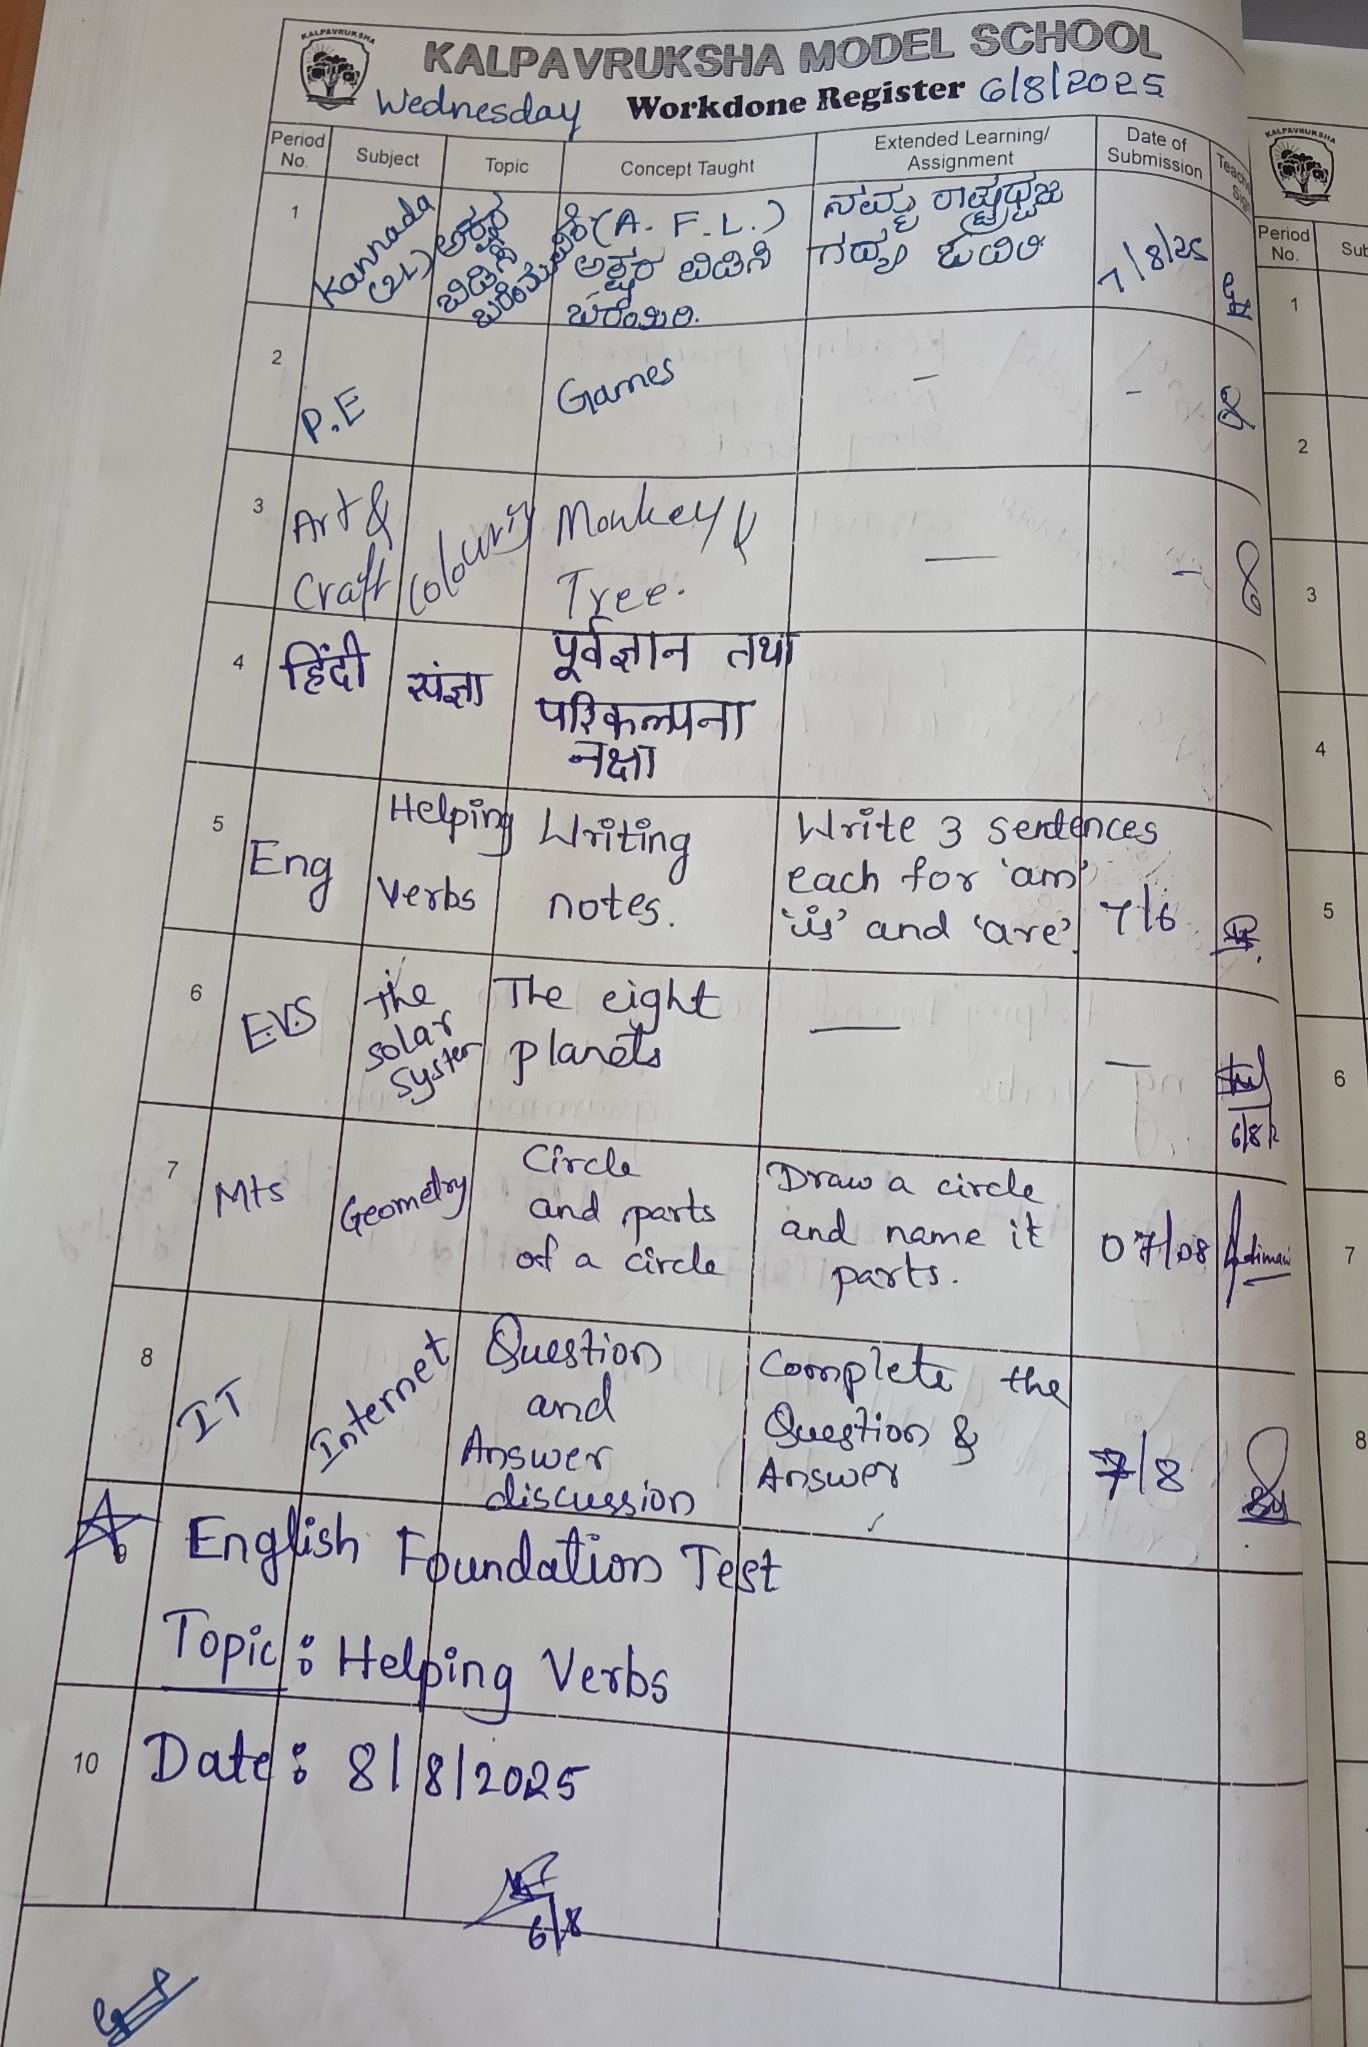 KALPAVRUKSHA
KALPAVRUKSHA MODEL SCHOOL
Wednesday Workdone Register 6/8/2025
Period No. Subject Topic Concept Taught Extended Learning/ Assignment Date of Submission
1 Kannada (2L) ಅಕ್ಷರ ಬಿಡಿಸಿ (A.F.L.) ಅಕ್ಷರ ಬಿಡಿಸಿ ಬರೆಯಿರಿ. ನಮ್ಮ ರಾಷ್ಟ್ರಧ್ವಜ ಗದ್ಯ ಓದಿರಿ 7/8/25
2 P.E Games - -
3 Art & Craft Colouring Monkey & Tree. - -
4 हिंदी संज्ञा पूर्वज्ञान तथा परिकल्पना नक्षा
5 Eng Helping Verbs Writing notes. Write 3 sentences each for 'am' 'is' and 'are'. 7/6
6 E.V.S The Solar System The eight planets - -
6/8
7 Mts Geometry Circle and parts of a circle Draw a circle and name it parts. 07/08
8 IT Internet Question and Answer discussion Complete the Question & Answer 7/8
English Foundation Test
Topic: Helping Verbs
10 Date: 8/8/2025
6/8
KALPAVRUKSHA
Period No. Sub
1
2
3
4
5
6
7
8